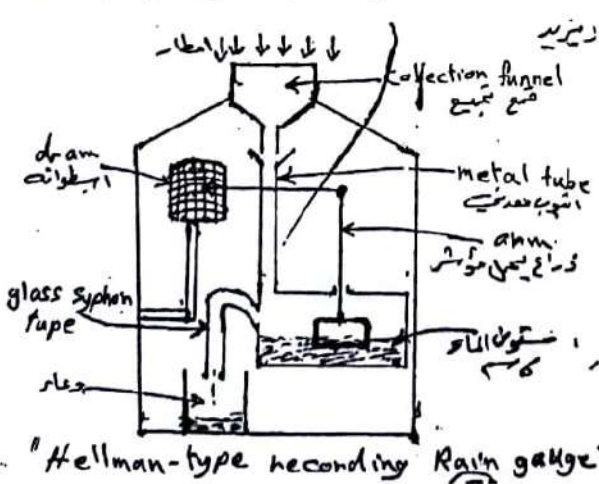 امطار
collection funnel
قمع تجميع
dram
اسطوانه
metal tube
انبوب معدني
anm
glass syphon
tupe
وعاء
"Hellman-type reconding Rain gauge"